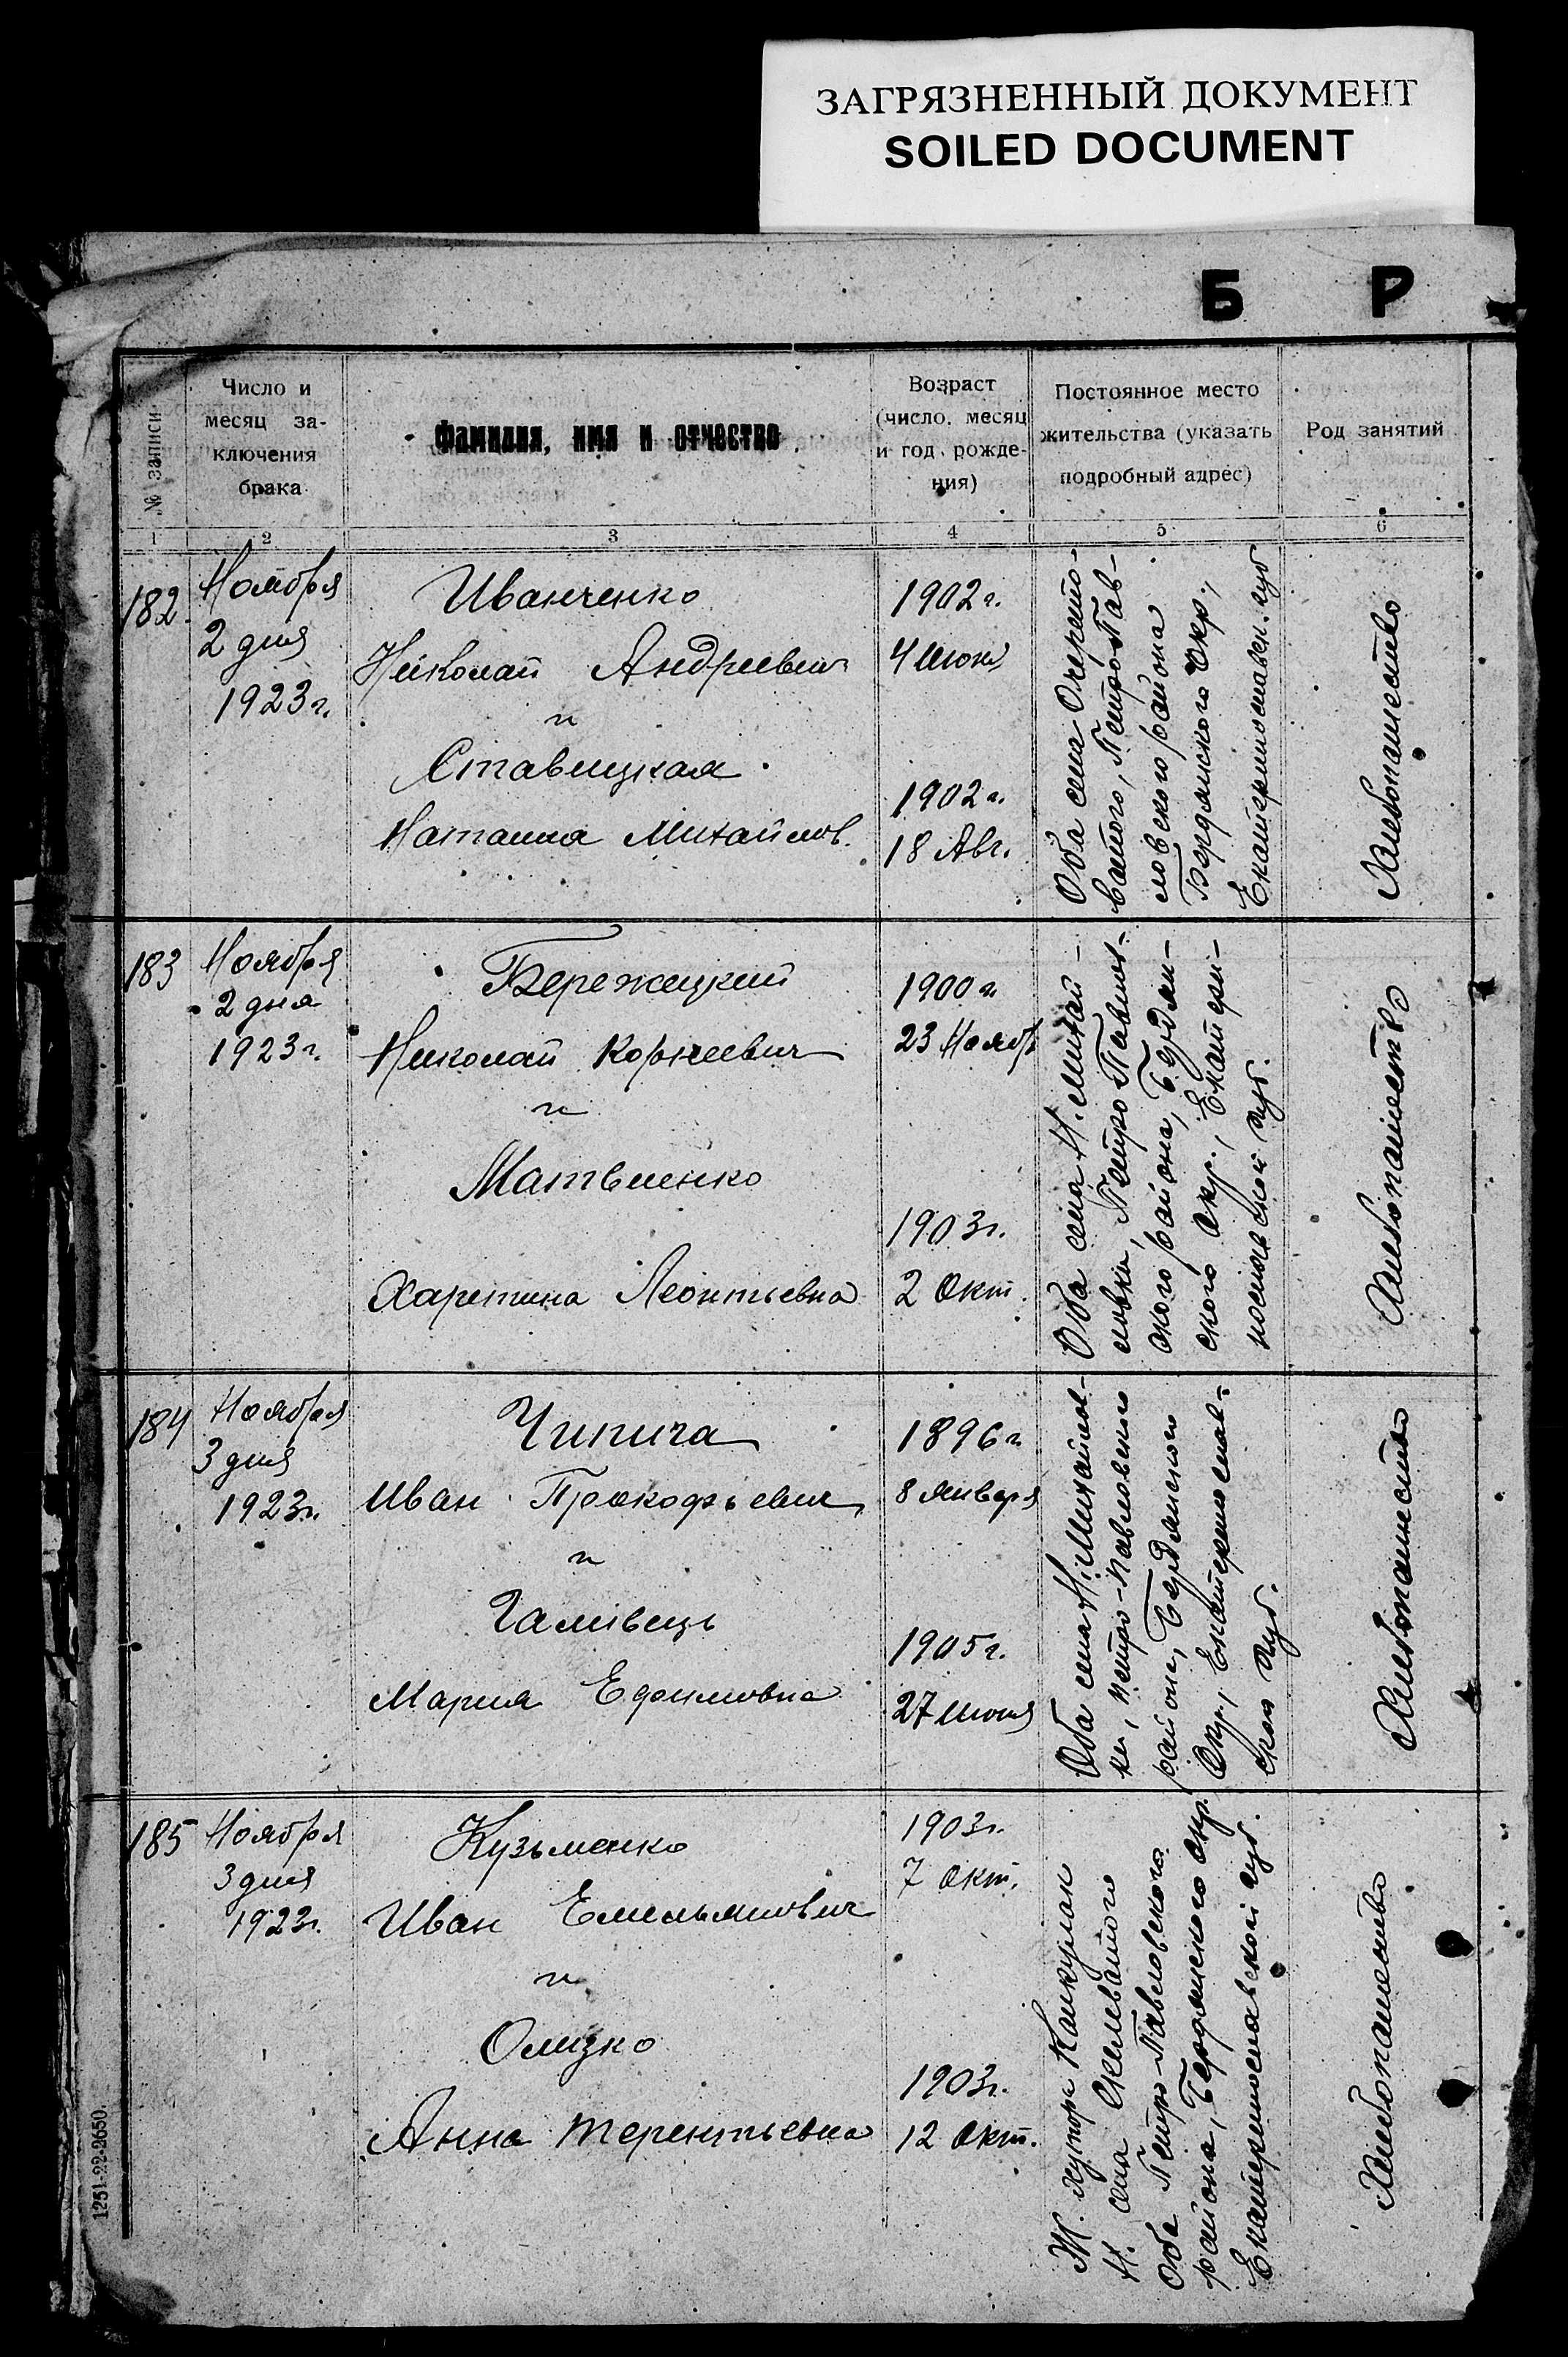 ЗАГРЯЗНЕННЫЙ ДОКУМЕНТ
SOILED DOCUMENT
Б Р
№ записи
Число и
месяц за-
ключения
брака
Фамилия, имя и отчество
Возраст
(число, месяц
и год рожде-
ния)
Постоянное место
жительства (указать
подробный адрес)
Род занятий
1 2 3 4 5 6
182.
Ноября
2 дня
1923 г.
Иванченко
Николай Андреевич
и
Ставицкая
Наталия Михайлов.
1902 г.
4 Июня
1902 г.
18 Авг.
Оба села Очерето-
ватого, Петро-Пав-
ловского района
Бердянского Окр.,
Екатеринославск. губ
Хлебопашество
183
Ноября
2 дня
1923 г.
Бережецкий
Николай Корнеевич
и
Матвиенко
Харетина Леонтьевна
1900 г.
23 Ноябр
1903 г.
2 Окт.
Оба села Н. Михай-
ловки, Петро Павлов-
ского района, Бердян-
ского Окр., Екатери-
нославской губ.
Хлебопашество
184
Ноября
3 дня
1923 г.
Чипича
Иван Прокофьевич
и
Галивець
Мария Ефимовна
1896 г.
8 Января
1905 г.
27 Июля
Оба села Н. Михайлов-
ки, Петро-Павловского
района, Бердянского
Окр., Екатеринослав-
ской губ.
Хлебопашество
185
Ноября
3 дня
1923 г.
Кузьменко
Иван Емельянович
и
Олизко
Анна Терентьевна
1903 г.
7 Окт.
1903 г.
12 Окт.
Ж. хутора Канкулак
Н. села Скелеватого
Оба Петро-Павловского
района, Бердянского окр.
Екатеринославской губ.
Хлебопашество
1251-22-2650.